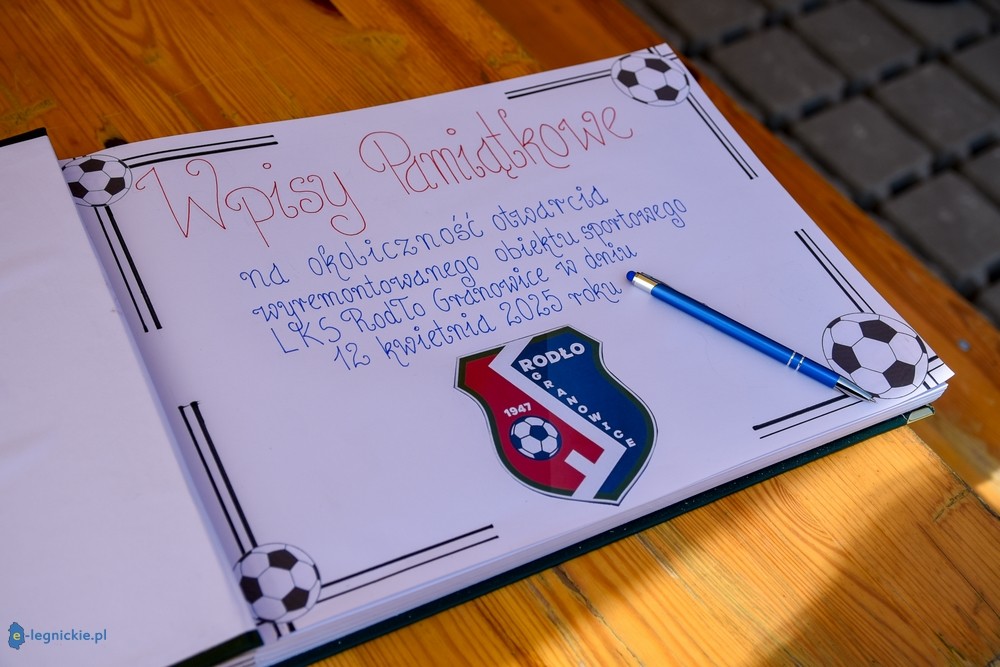 Wpisy Pamiątkowe
na okoliczność otwarcia
wyremontowanego obiektu sportowego
LKS Rodło Granowice w dniu
12 kwietnia 2025 roku
RODŁO
GRANOWICE
1947
e-legnickie.pl